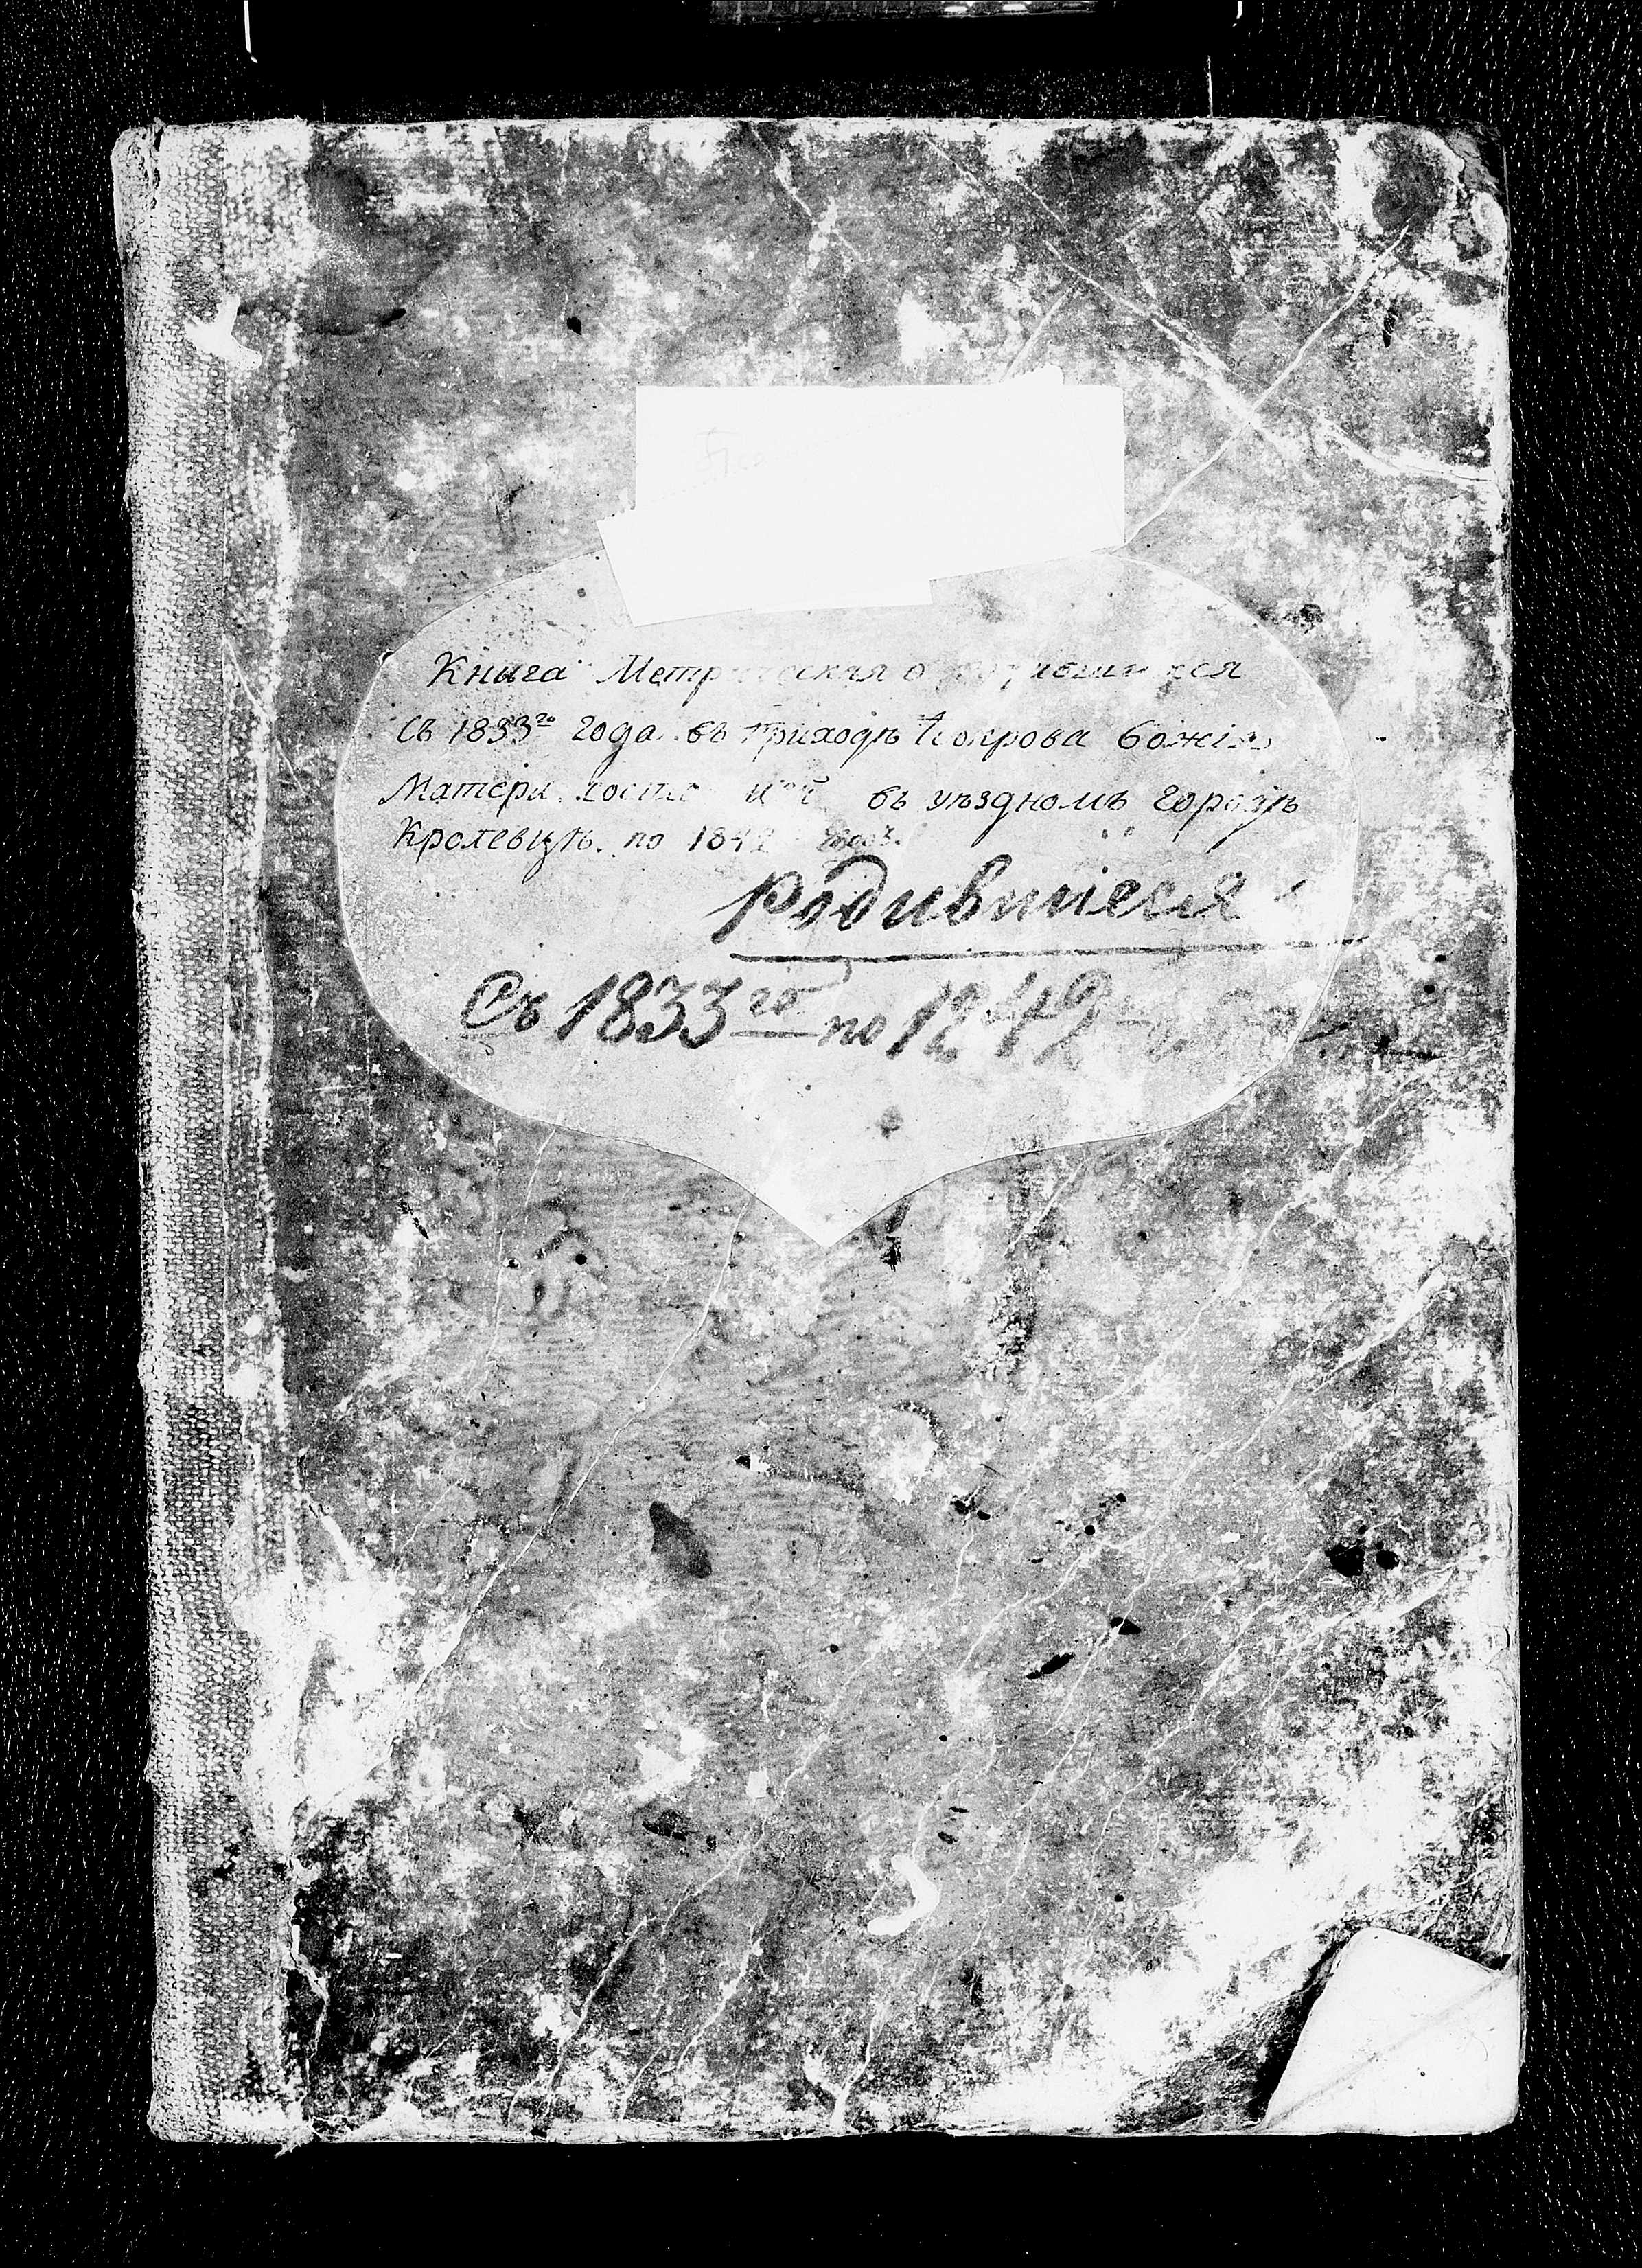 Книга Метрическая о родившихся
съ 1833го года въ приходѣ Покрова Божія
Матери въ уѣздномъ городѣ
Кролевцѣ. по 1842 годъ.
Родившіеся
Съ 1833го по 1842